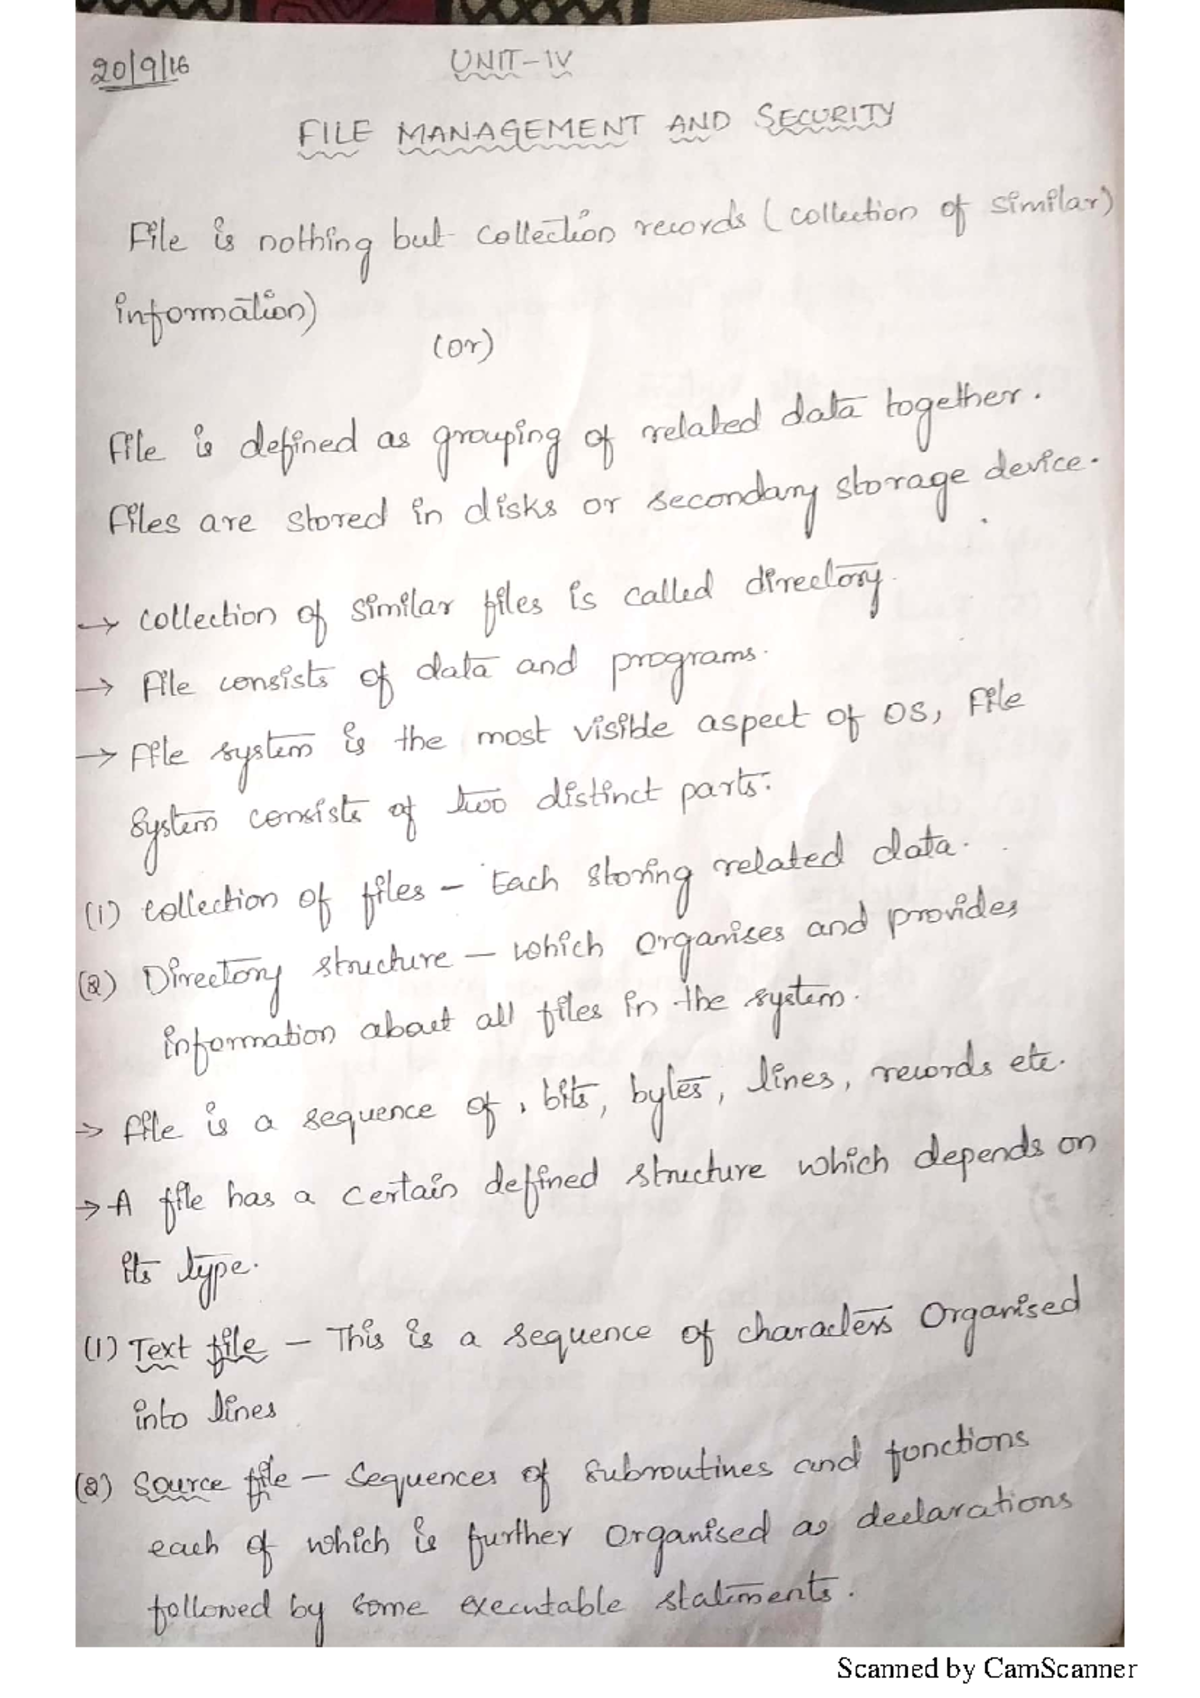 20/9/16
UNIT-IV
FILE MANAGEMENT AND SECURITY
File is nothing but collection records (collection of similar)
information)
(or)
File is defined as grouping of related data together.
Files are stored in disks or secondary storage device.
→ collection of similar files is called directory.
→ File consists of data and programs.
→ File system is the most visible aspect of OS, File
System consists of two distinct parts:
(1) Collection of files - Each storing related data.
(2) Directory structure - which organises and provides
information about all files in the system.
→ File is a sequence of, bits, bytes, lines, records etc.
→ A file has a certain defined structure which depends on
its type.
(1) Text file - This is a sequence of characters Organised
into lines
(2) Source file - Sequences of subroutines and fonctions
each of which is further Organised as declarations
followed by some executable statements.
Scanned by CamScanner